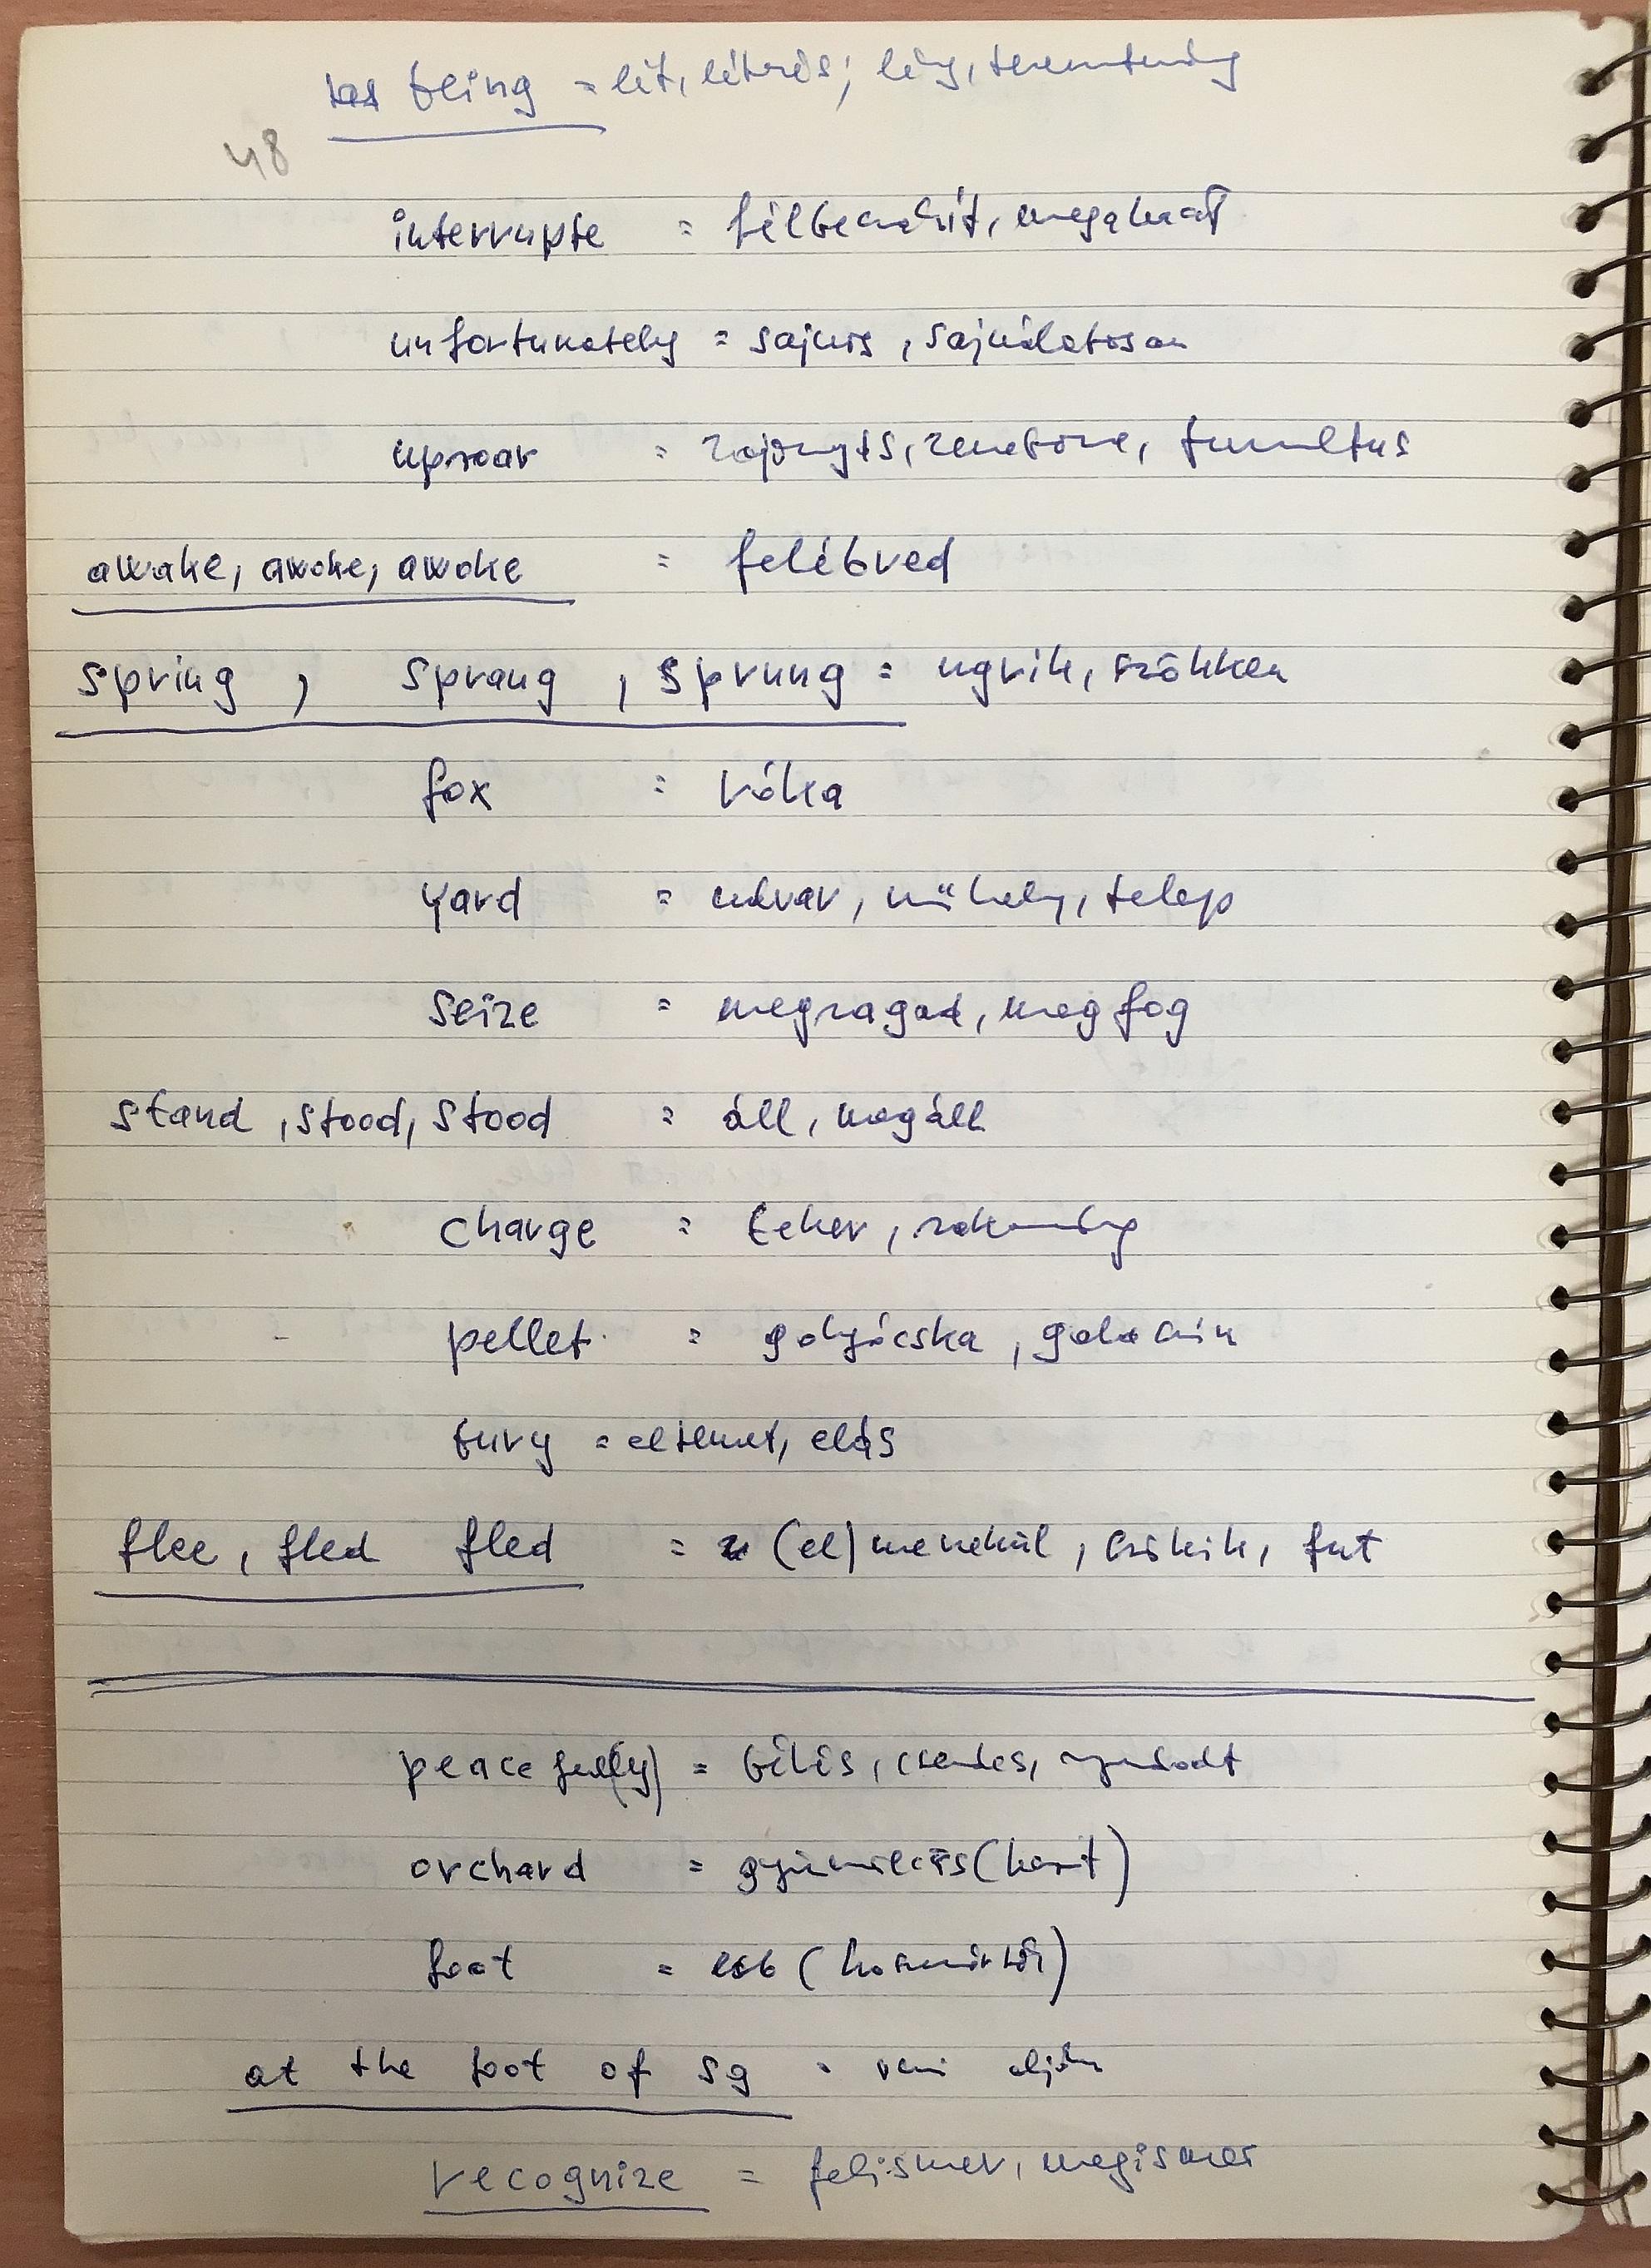 being = lét, létezés; lény, teremtmény
48
interrupte = félbeszakít, megakaszt
unfortunately = sajnos, sajnálatosan
uproar = zajongás, zenebona, tumultus
awake, awoke, awoke = felébred
spring, sprang, sprung = ugrik, szökken
fox = róka
yard = udvar, műhely, telep
seize = megragad, megfog
stand, stood, stood = áll, megáll
charge = teher, rakomány
pellet = golyócska, galacsin
bury = eltemet, elás
flee, fled fled = (el)menekül, szökik, fut
peaceful(ly) = békés, csendes, nyugodt
orchard = gyümölcsös(kert)
foot = láb
at the foot of sg = vmi alján
recognize = felismer, megismer